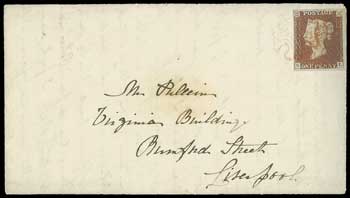 POSTAGE
ONE PENNY
Mr
Virginia Buildings
Rumford Street
Liverpool